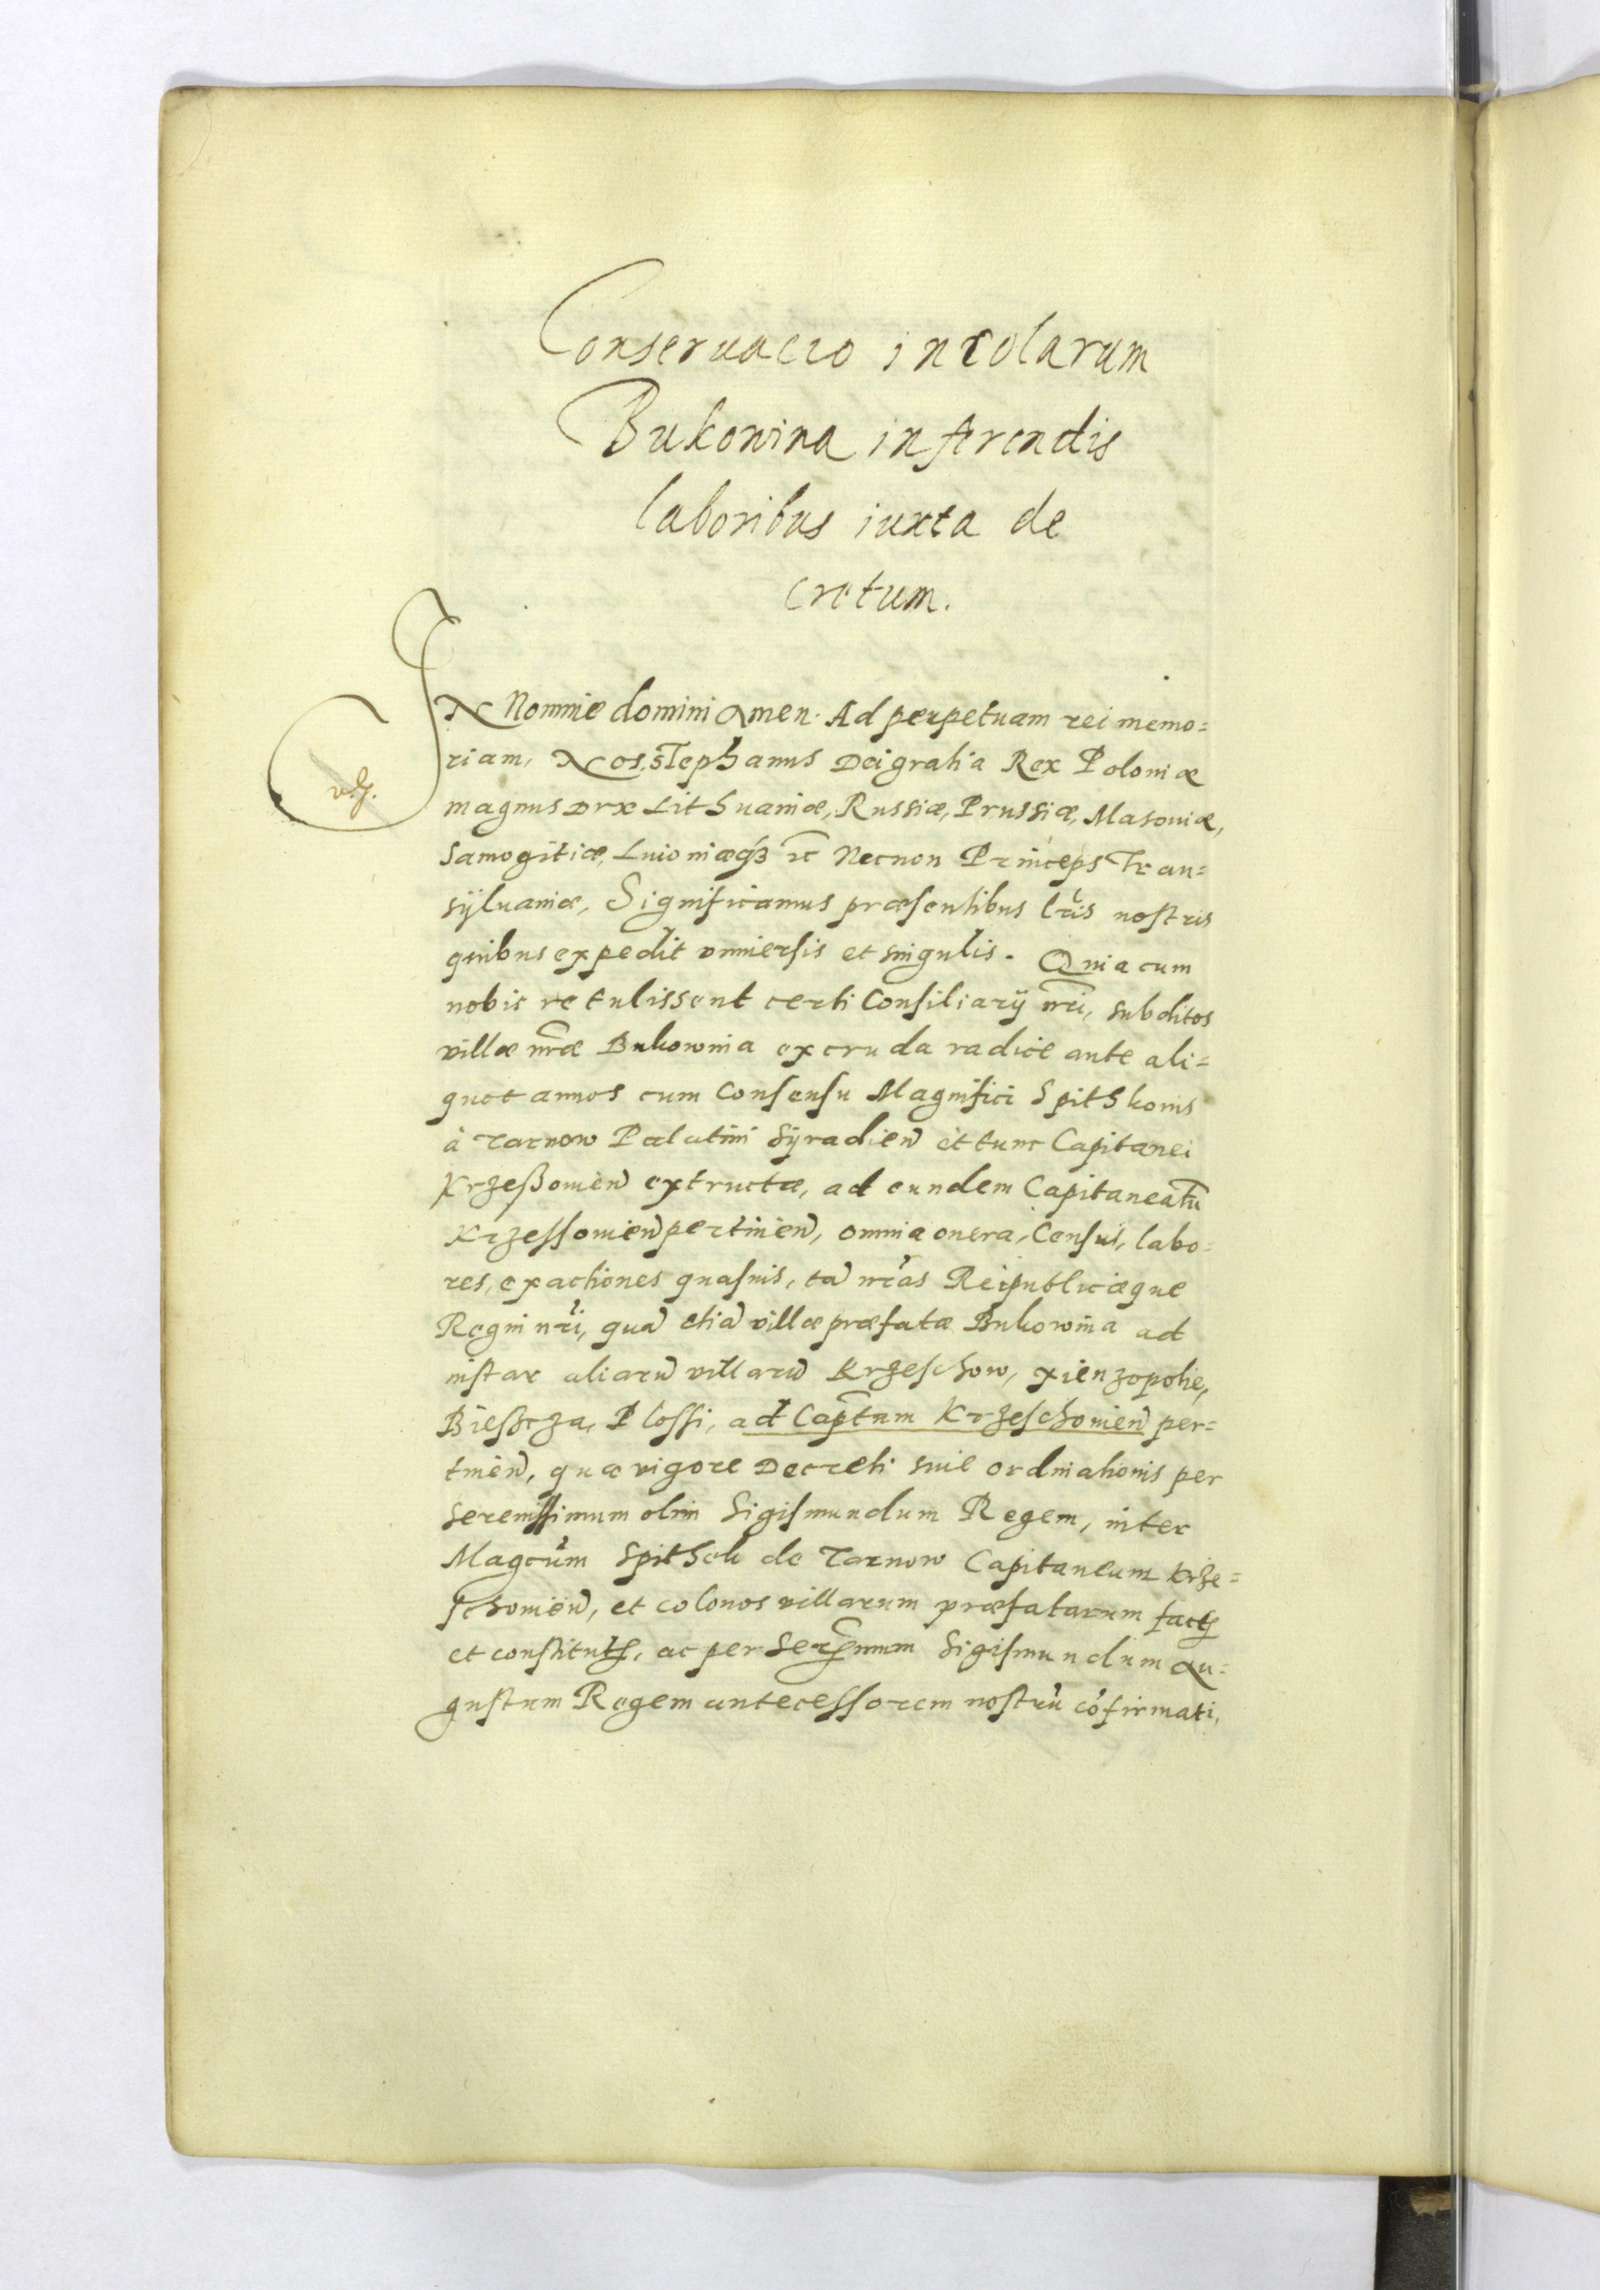 Conseruacio incolarum
Bukowina in ferendis
laboribus iuxta de
cretum.
IN Nomine domini Amen. Ad perpetuam rei memo=
riam, Nos Stephanus Dei gratia Rex Poloniæ
magnus Dux Lithuaniæ, Russiæ, Prussiæ, Masouiæ,
Samogitiæ, Liuoniæqȝ ꝛc Necnon Princeps Tran=
sÿluaniæ, Significamus præsentibus lr̃is nostris
quibus expedit vniuersis et singulis. Quia cum
nobis retulissent certi Consiliarÿ nr̃i, subditos
villæ nr̃æ Bukowina ex cruda radice ante ali=
quot annos cum Consensu Magnifici Spithkonis
à Tarnow Palatini Sÿradien̄ et tunc Capitanei
Krzeßouien̄ extructæ, ad eundem Capitaneatū
Krzessouien̄ pertinien̄, omnia onera, Census, labo=
res, exactiones quasuis, tā nr̃as Reipublicæque
Regni nr̃i, quā etiā villæ præfatæ Bukowina ad
instar aliarū villarū Krzeschow, xienzopolie,
Biesscza, Plossi, ad Capt̃um Krzeschouien̄ per=
tinen̄, quæ vigore Decreti siue ordinationis per
Serenissimum olim Sigismundum Regem, inter
Magcũm Spithek de Tarnow Capitaneum Krze=
schouien̄, et colonos villarum præfatarum factæ
et constitutæ, ac per Serẽnmum Sigismundum Au=
gustum Regem antecessorem nostrū cōfirmati,